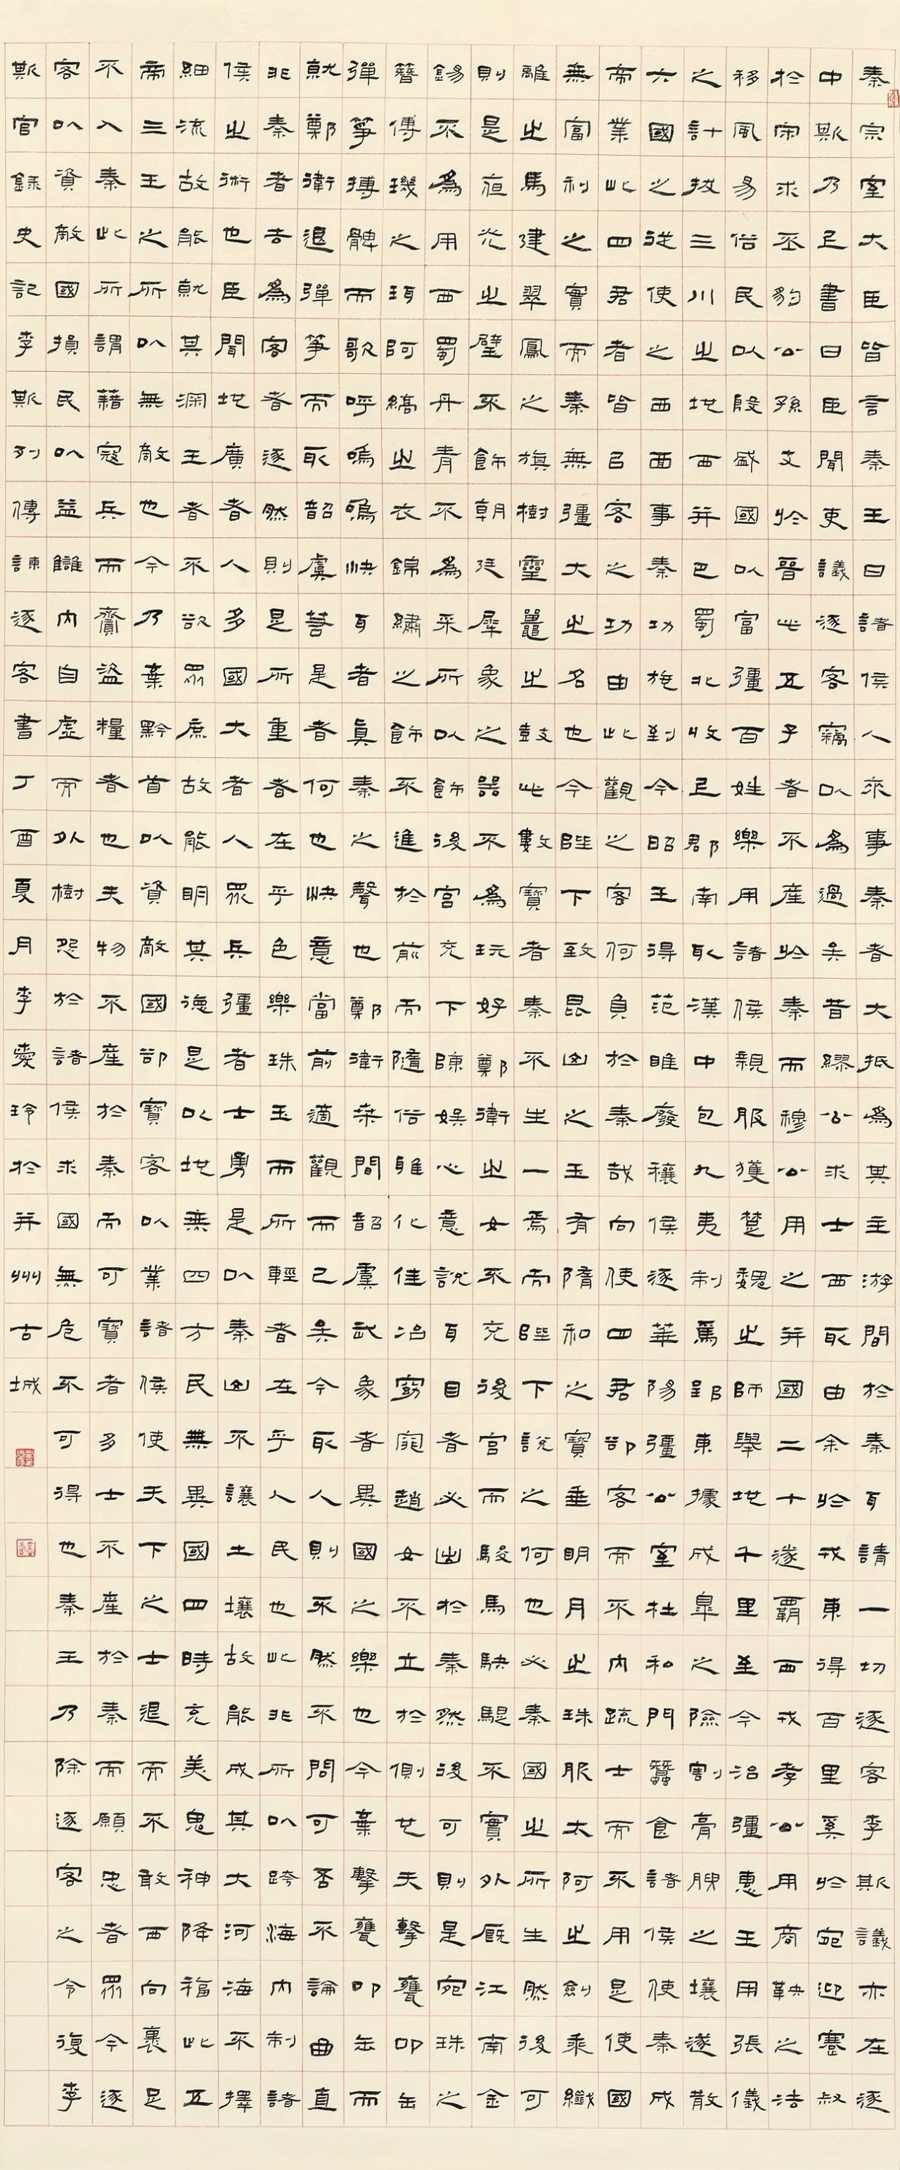 秦宗室大臣皆言秦王曰諸侯人來事秦者大抵為其主游間於秦耳請一切逐客李斯議亦在逐
中斯乃上書曰臣聞吏議逐客竊以為過矣昔繆公求士西取由余於戎東得百里奚於宛迎蹇叔
於宋求丕豹公孫支於晉此五子者不產於秦而穆公用之并國二十遂霸西戎孝公用商鞅之法
移風易俗民以殷盛國以富彊百姓樂用諸侯親服獲楚魏之師舉地千里至今治彊惠王用張儀
之計拔三川之地西并巴蜀北收上郡南取漢中包九夷制鄢郢東據成皋之險割膏腴之壤遂散
六國之從使之西面事秦功施到今昭王得范雎廢穰侯逐華陽彊公室杜私門蠶食諸侯使秦成
帝業此四君者皆以客之功由此觀之客何負於秦哉向使四君卻客而不內疏士而不用是使國
無富利之實而秦無彊大之名也今陛下致昆山之玉有隋和之寶垂明月之珠服太阿之劍乘纖
離之馬建翠鳳之旗樹靈鼉之鼓此數寶者秦不生一焉而陛下說之何也必秦國之所生然後可
則是夜光之璧不飾朝廷犀象之器不為玩好鄭衛之女不充後宮而駿馬駃騠不實外廄江南金
錫不為用西蜀丹青不為采所以飾後宮充下陳娛心意說耳目者必出於秦然後可則是宛珠之
簪傅璣之珥阿縞之衣錦繡之飾不進於前而隨俗雅化佳冶窈窕趙女不立於側也夫擊甕叩缶
彈箏搏髀而歌呼嗚嗚快耳者真秦之聲也鄭衛桑間韶虞武象者異國之樂也今棄擊甕叩缶而
就鄭衛退彈箏而取韶虞若是者何也快意當前適觀而已矣今取人則不然不問可否不論曲直
非秦者去為客者逐然則是所重者在乎色樂珠玉而所輕者在乎人民也此非所以跨海內制諸
侯之術也臣聞地廣者人多國大者人眾兵彊者士勇是以秦山不讓土壤故能成其大河海不擇
細流故能就其深王者不欲眾庶故能明其德是以地無四方民無異國四時充美鬼神降福此五
帝三王之所以無敵也今乃棄黔首以資敵國卻賓客以業諸侯使天下之士退而不敢西向裹足
不入秦此所謂藉寇兵而齎盜糧者也夫物不產於秦而可寶者多士不產於秦而願忠者眾今逐
客以資敵國損民以益讎內自虛而外樹怨於諸侯求國無危不可得也秦王乃除逐客之令復李
斯官錄史記李斯列傳諫逐客書丁酉夏月李愛玲於并州古城